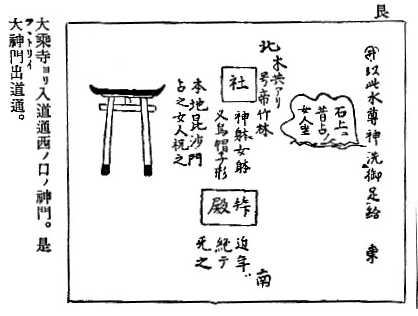 艮
卯以此水蓴神洗御足給 東
石上ニ
昔占ノ
女人坐
北 木共アリ
号帝竹林
社
神躰女躰
又烏帽子形
本地毘沙門
占之女人祝之
拝殿
近年
絶テ
无之
南
大乗寺ヨリ入道通西ノ口ノ神門。是
大神門出道通。